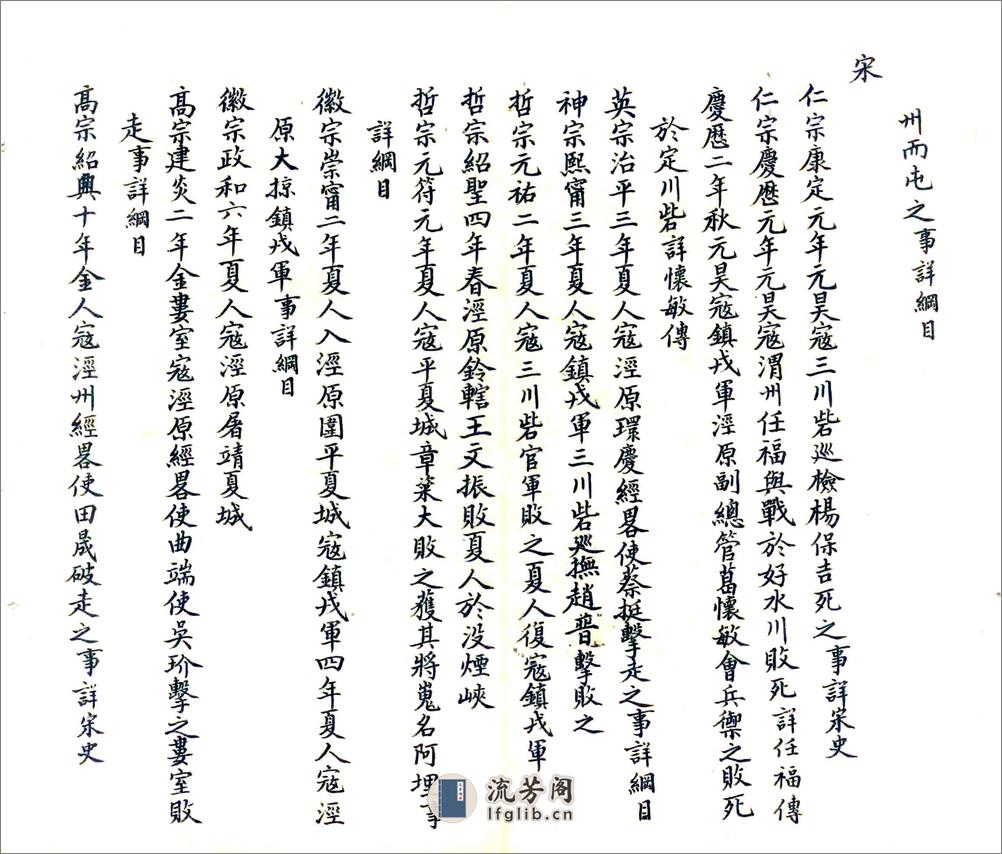 州而屯之事詳綱目
宋
仁宗康定元年元昊寇三川砦巡檢楊保吉死之事詳宋史
仁宗慶歷元年元昊寇渭州任福與戰於好水川敗死詳任福傳
慶歷二年秋元昊寇鎮戎軍涇原副總管葛懷敏會兵禦之敗死
於定川砦詳懷敏傳
英宗治平三年夏人寇涇原環慶經畧使蔡挺擊走之事詳綱目
神宗熙甯三年夏人寇鎮戎軍三川砦巡撫趙普擊敗之
哲宗元祐二年夏人寇三川砦官軍敗之夏人復寇鎮戎軍
哲宗紹聖四年春涇原鈐轄王文振敗夏人於没煙峽
哲宗元符元年夏人寇平夏城章楶大敗之獲其將嵬名阿埋事
詳綱目
徽宗崇甯二年夏人入涇原圍平夏城寇鎮戎軍四年夏人寇涇
原大掠鎮戎軍事詳綱目
徽宗政和六年夏人寇涇原屠靖夏城
高宗建炎二年金婁室寇涇原經畧使曲端使吳玠擊之婁室敗
走事詳綱目
高宗紹興十年金人寇涇州經畧使田晟破走之事詳宋史
流芳阁
lfglib.cn